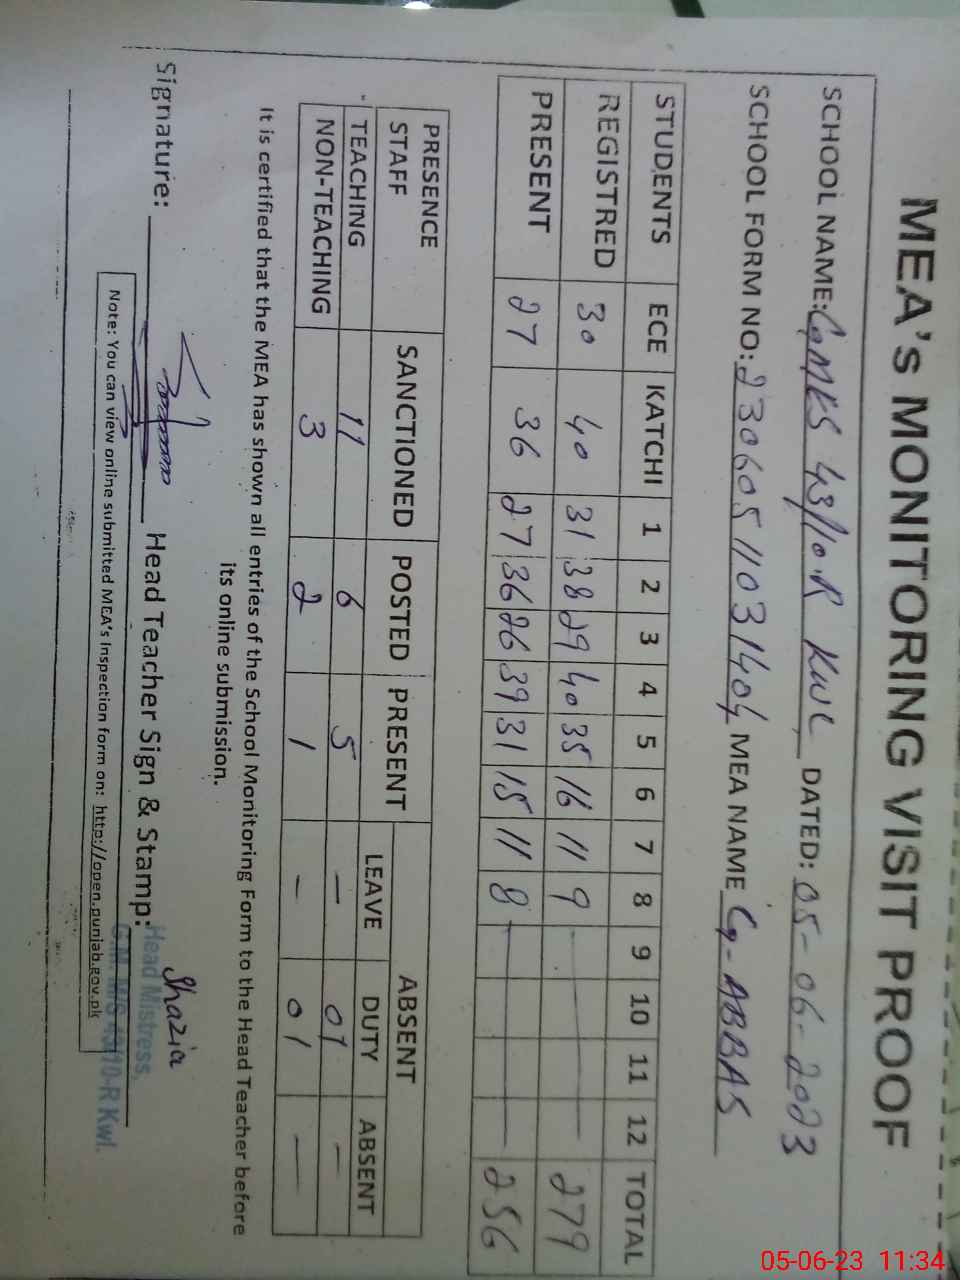 MEA's MONITORING VISIT PROOF
SCHOOL NAME: GGMES 43/10.R KWL DATED: 05-06-2023
SCHOOL FORM NO: 23060511031404 MEA NAME Cg-ABBAS
STUDENTS ECE KATCHI 1 2 3 4 5 6 7 8 9 10 11 12 TOTAL
REGISTRED 30 40 31 38 29 40 35 16 11 9 — 279
PRESENT 27 36 27 36 26 39 31 15 11 8 — 256
PRESENCE STAFF SANCTIONED POSTED PRESENT ABSENT
LEAVE DUTY ABSENT
TEACHING 11 6 5 — 01 —
NON-TEACHING 3 2 1 — 01 —
It is certified that the MEA has shown all entries of the School Monitoring Form to the Head Teacher before
its online submission.
Signature: Head Teacher Sign & Stamp: Shazia
Head Mistress,
G.M. M/S 43/10-R Kwl.
Note: You can view online submitted MEA's Inspection form on: http://open.punjab.gov.pk
05-06-23 11:34